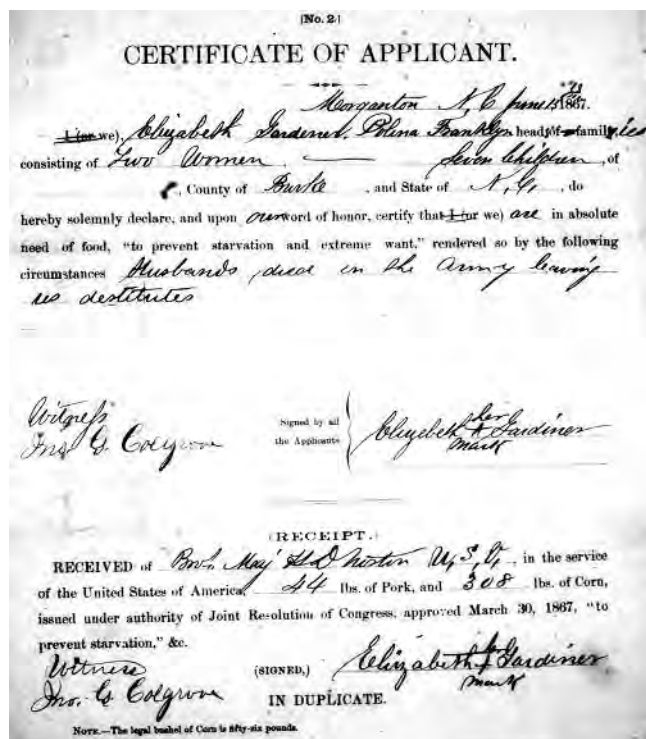 [No. 2.]
CERTIFICATE OF APPLICANT.
Morganton N. C. June 15 1867.
I (or we), Elizabeth Gardener, Polina Franklyn heads of families
consisting of Two Women — Seven Children, of
, County of Burke, and State of N. C., do
hereby solemnly declare, and upon our word of honor, certify that I (or we) are in absolute
need of food, "to prevent starvation and extreme want," rendered so by the following
circumstances Husbands died in the Army leaving
us destitutes
Witness
Jno. G. Colgrove
Signed by all
the Applicants
Elizebeth her x Gardiner
mark
(RECEIPT.)
RECEIVED of Bvt. Maj H D Norton U, S, V, in the service
of the United States of America, 44 lbs. of Pork, and 308 lbs. of Corn,
issued under authority of Joint Resolution of Congress, approved March 30, 1867, "to
prevent starvation," &c.
Witness
(SIGNED,) Elizabeth her x Gardiner
mark
Jno. G Colgrove
IN DUPLICATE.
NOTE.—The legal bushel of Corn is fifty-six pounds.